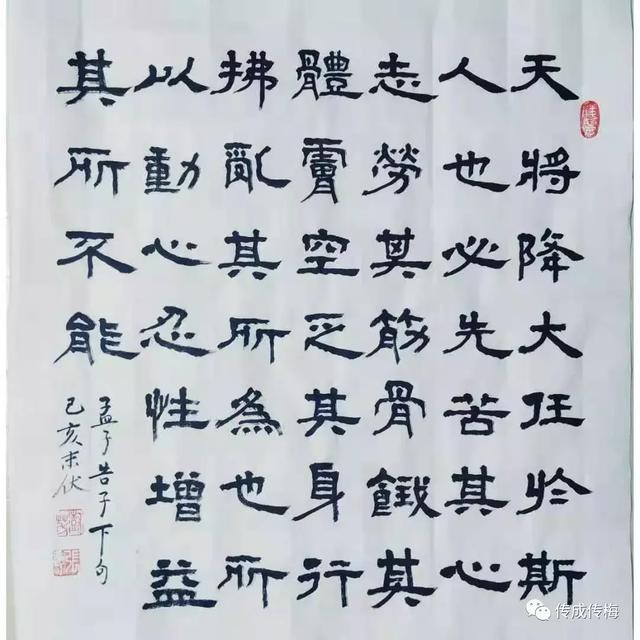 天將降大任於斯
人也必先苦其心
志勞其筋骨餓其
體膚空乏其身行
拂亂其所為也所
以動心忍性增益
其所不能
孟子告子下句
己亥末伏
传成传梅